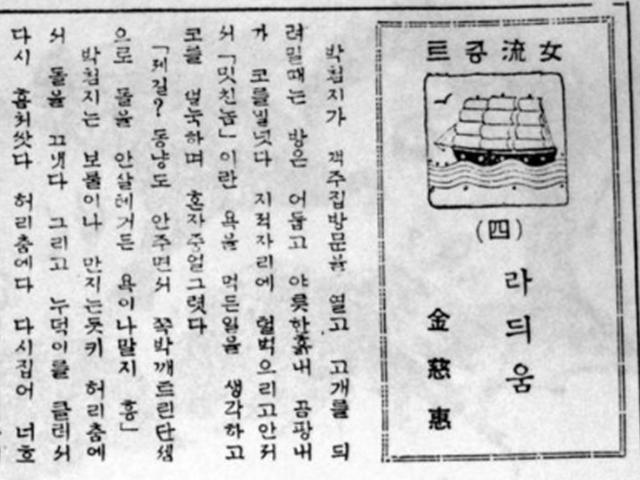 女流콩트
(四)
라듸움
金慈惠
박첨지가 객주집방문을 열고 고개를 듸
려밀때는 방은 어둡고 야릇한흙내 곰팡내
가 코를밀넛다 지적자리에 헐벅으리고안저
서 「밋친놈」이란 욕을 먹든일을 생각하고
코를 덜눅하며 혼자중얼그렷다
「제길? 동냥도 안주면서 쪽박깨트린단셈
으로 돌을 안살헤거든 욕이나말지 흥」
박첨지는 보물이나 만지는듯키 허리춤에
서 돌을 끄냇다 그리고 누덕이를 클러서
다시 홈처쌋다 허리춤에다 다시집어 너호